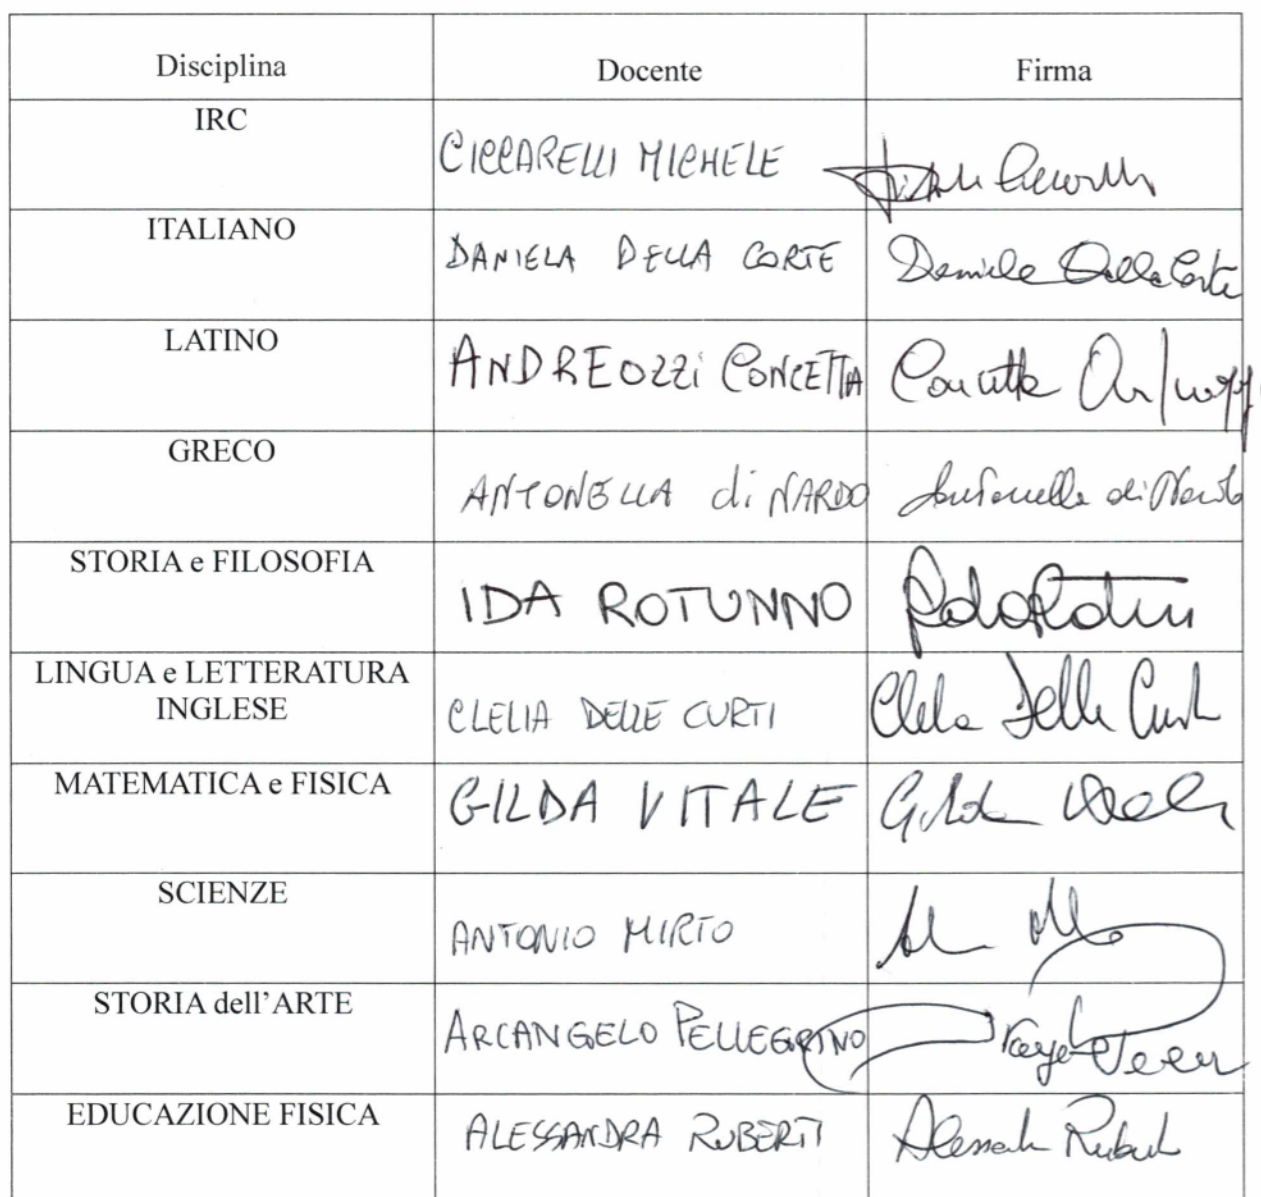 Disciplina Docente Firma
IRC
CICCARELLI MICHELE
ITALIANO
DANIELA DELLA CORTE Daniela Della Corte
LATINO
ANDREOZZI CONCETTA Concetta
GRECO
ANTONELLA di NARDO Antonella di Nardo
STORIA e FILOSOFIA
IDA ROTUNNO
LINGUA e LETTERATURA
INGLESE
CLELIA DELLE CURTI Clelia Delle Curti
MATEMATICA e FISICA
GILDA VITALE Gilda Vitale
SCIENZE
ANTONIO MIRTO
STORIA dell'ARTE
ARCANGELO PELLEGRINO
EDUCAZIONE FISICA
ALESSANDRA RUBERTI Alessandra Ruberti